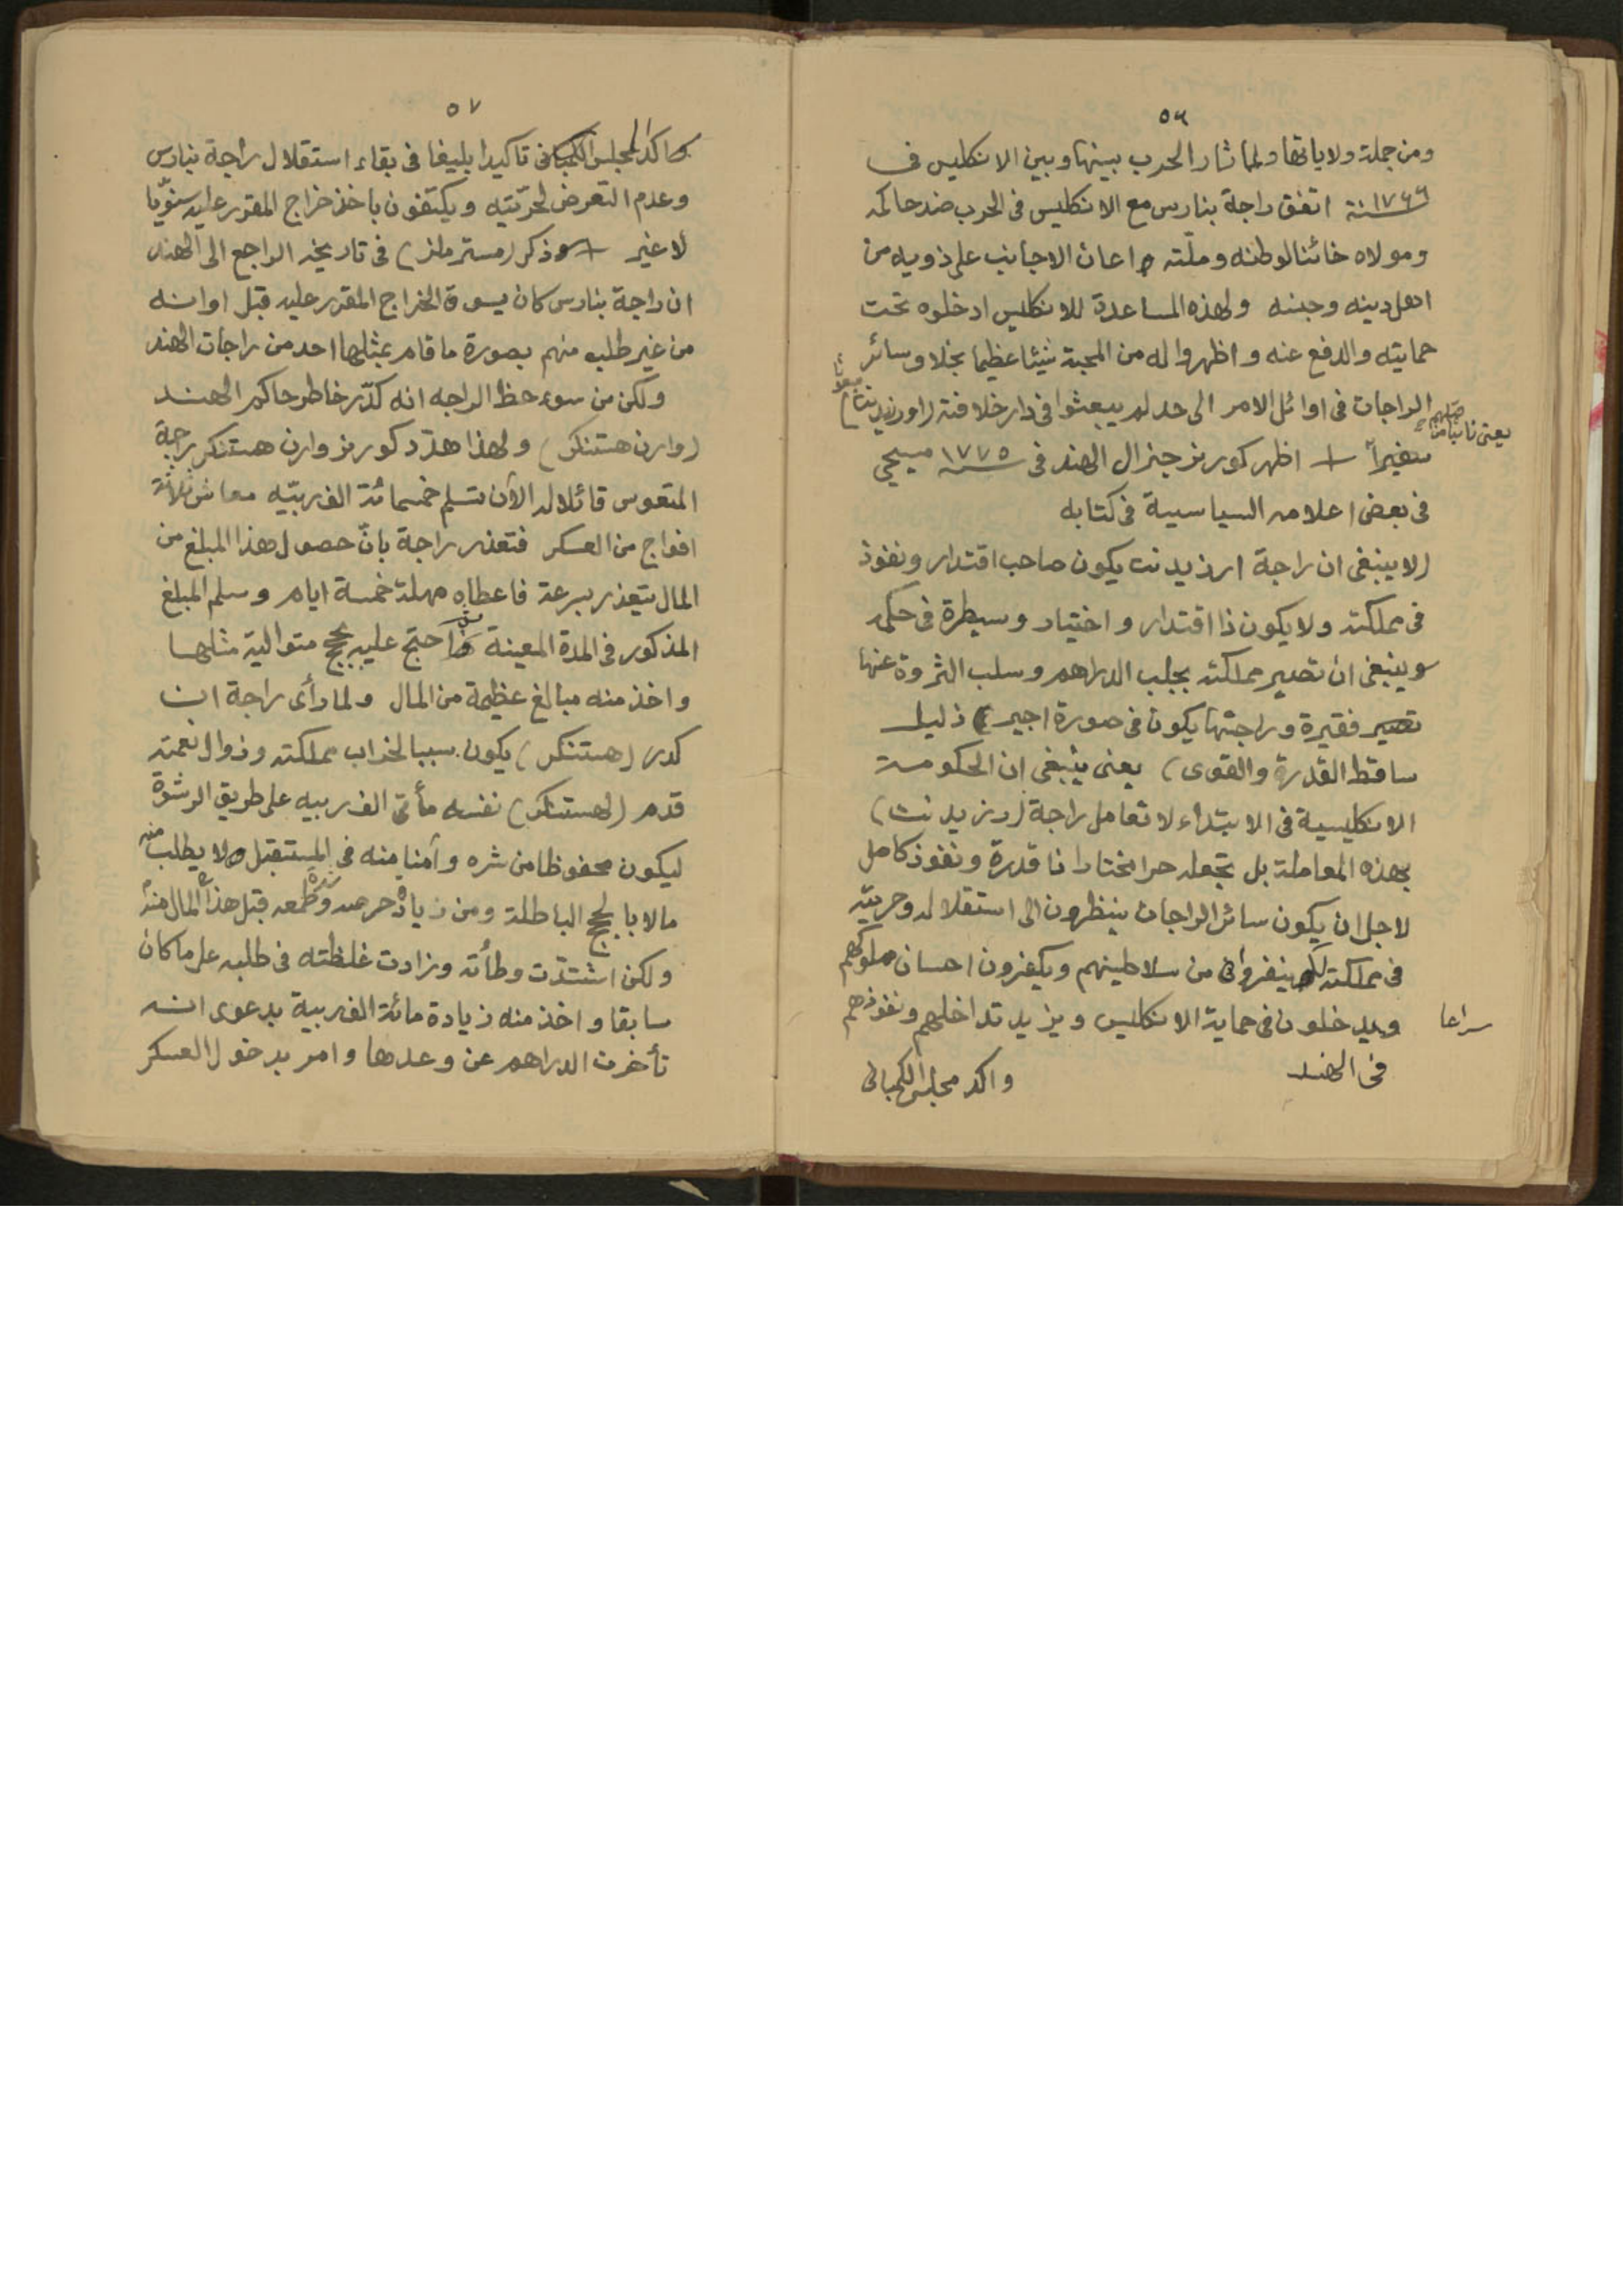 ٥٦
ومن جملة ولاياتها ولما ثار الحرب بينها وبين الانكليس فى
١٧٦٦ سنة اتفق راجة بنارس مع الانكليس فى الحرب ضد حاكمه
ومولاه خائنا لوطنه وملّته واعان الاجانب على ذويه من
اهل دينه وجنسه ولهذه المساعدة للانكليس ادخلوه تحت
حمايته والدفع عنه واظهروا له من المحبة شيئا عظيما بخلاف سائر
الراجات فى اوائل الامر الى حد لم يبعثوا فى دار خلافته (اورزيدينتا)
يعنى نائبا من قبلهم
سفيراً + اظهر كورنر جنرال الهند فى ١٧٧٥ سنة مسيحى
فى بعض اعلامه السياسية فى كتابه
(لا ينبغى ان راجة ارزيدنت يكون صاحب اقتدار ونفوذ
فى مملكته ولا يكون ذا اقتدار واختيار وسيطرة فى حكمه
وينبغى ان تصير مملكته بجلب الدراهم وسلب الثروة عنها
تصير فقيرة وراجتها يكون فى صورة اجير ذليل
ساقط القدرة والقوى) يعنى ينبغى ان الحكومت
الانكليسية فى الابتداء لا تعامل راجة (رزيدنت)
بهذه المعاملة بل تجعله حرا مختارا ذا قدرة ونفوذ كامل
لاجل ان يكون سائر الراجات ينظرون الى استقلاله وحريّته
فى مملكته لكى ينفروا من سلاطينهم ويكفرون احسان ملوكهم
ويدخلون فى حماية الانكليس ويزيد تداخلهم ونفوذهم
سراعا
فى الهند
واكد مجلس الكمبانى
٥٧
واكد المجلس الكمبانى تاكيدا بليغا فى بقاء استقلال راجة بنارس
وعدم التعرض لحرّيّته ويكتفون باخذ خراج المقرر عليه سنويّا
لا غير + وذكر (مستر ملز) فى تاريخه الراجع الى الهند
ان راجة بنارس كان يسوق الخراج المقرر عليه قبل اوانه
من غير طلب منهم بصورة ما قام بمثلها احد من راجات الهند
ولكن من سوء حظ الراجه انه كدّر خاطر حاكم الهند
(وارن هستنكز) ولهذا هدّد كورنر وارن هستنكز راجة
المتعوس قائلا له الآن تسلم خمسمائة الف ربيّه معاش ثلاثة
افواج من العسكر فتعذر راجة بانّ حصول هذا المبلغ من
المال يتعذر بسرعة فاعطاه مهلة خمسة ايام وسلم المبلغ
المذكور فى المدة المعينة ثم احتج عليه بحجج متوالية مثلها
واخذ منه مبالغ عظيمة من المال ولما رأى راجة ان
كدر (هستنكز) يكون سببا لخراب مملكته وزوال نعمته
قدم (لهستنكز) نفسه مأتى الف ربيه على طريق الرشوة
ليكون محفوظا من شره وآمنا منه فى المستقبل ولا يطلب منه
مالا بالحجج الباطلة ومن زيادة حرصه وطمعه قبل هذا المال منه
ولكن اشتدّت وطأته وزادت غلظته فى طلبه على ما كان
سابقا واخذ منه زيادة مائة الف ربية بدعوى انه
تأخرت الدراهم عن وعدها وامر بدخول العسكر